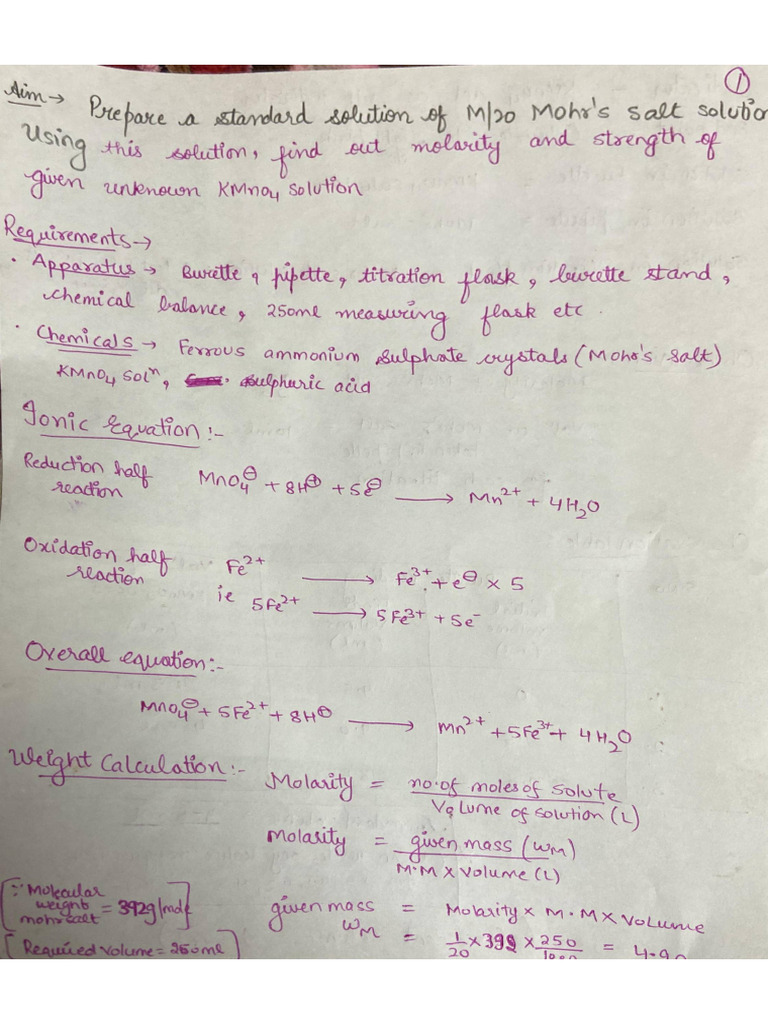 ①
Aim → Prepare a standard solution of M/20 Mohr's salt solutio
Using this solution, find out molarity and strength of
given unknown KMnO4 solution
Requirements →
• Apparatus → Burette, pipette, titration flask, burette stand,
chemical balance, 250ml measuring flask etc.
• Chemicals → Ferrous ammonium sulphate crystals (Mohr's salt)
KMnO4 solⁿ, sulphuric acid
Ionic Equation :-
Reduction half reaction MnO4⊖ + 8H⊕ + 5e⊖ ⟶ Mn²⁺ + 4H2O
Oxidation half reaction Fe²⁺ ⟶ Fe³⁺ + e⊖ × 5
ie 5Fe²⁺ ⟶ 5Fe³⁺ + 5e⁻
Overall equation :-
MnO4⊖ + 5Fe²⁺ + 8H⊕ ⟶ Mn²⁺ + 5Fe³⁺ + 4H2O
Weight Calculation :- Molarity = no. of moles of solute / Volume of solution (L)
Molarity = given mass (WM) / M.M × Volume (L)
[∵ Molecular weight mohr salt = 392g/mol]
given mass = Molarity × M.M × Volume
[Required Volume = 250ml]
WM = 1/20 × 392 × 250/1000 = 4.90